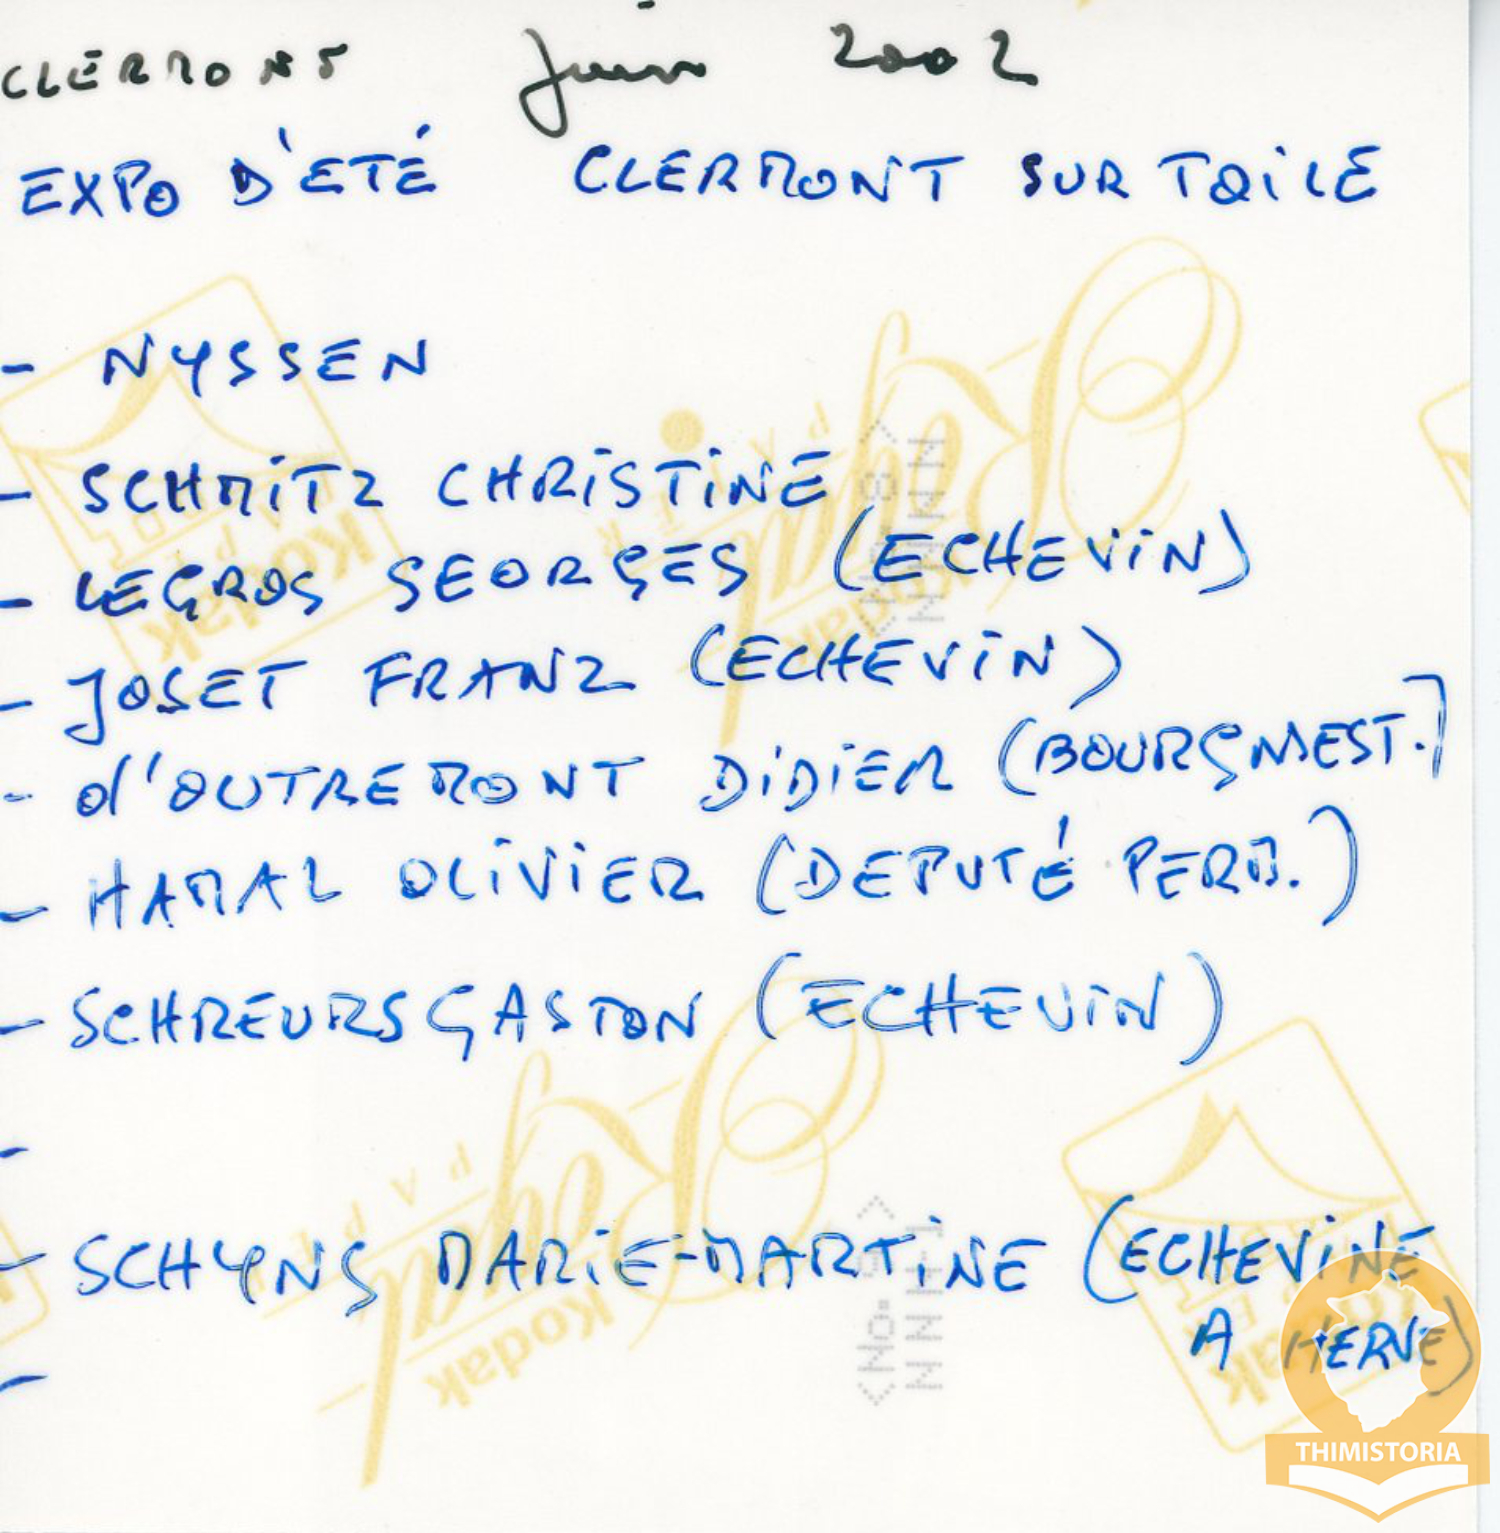 CLERMONT Juin 2002
EXPO D'ETÉ CLERMONT SUR TOILE
- NYSSEN
- SCHMITZ CHRISTINE
- LEGROS GEORGES (ECHEVIN)
- JOSET FRANZ (ECHEVIN)
- d'OUTREMONT DIDIER (BOURGMEST.)
- HAMAL OLIVIER (DEPUTÉ PERM.)
- SCHREURS GASTON (ECHEVIN)
-
- SCHYNS MARIE-MARTINE (ECHEVINE
A HERVE)
-
Kodak
Royal
Kodak
Kodak
Royal
Kodak
THIMISTORIA